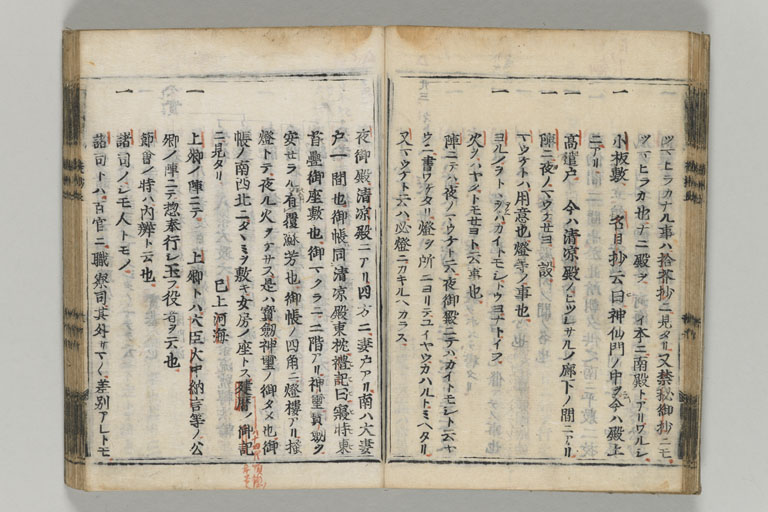 ツマヒラカナル事ハ拾芥抄ニ見タリ又禁秘御抄ニモ
ツマヒラカ也ナニ殿ヲ河海イ本ニ南殿トアリワルシ
一 小板敷 名目抄云曰神仙門ノ中ヲ今ハ殿上
ニアリ
一 高遣戸 今ハ清凉殿ノヒツシサルノ廊下ノ間ニアリ
一 陣ニ夜ノマウケセヨ 設
マウケトハ用意也燈等ノ事也
一 ヨルノヲトヽヲハカイトモシトウヨナトイフ
火ヲハヤクトモセヨト云事也
陣ニテハ夜ノマウケト云夜御殿ニテハカイトモシト云ヤ
ウニ書ワケタリ燈ヲ所ニヨリテユイヤウカハルトミヘタリ
又マウケト云ハ必燈ニカキルヘカラス
夜御殿清凉殿ニアリ四方ニ妻戸アリ南ハ大妻
戸一間也御帳同清凉殿東枕禮記曰寢恃東
首疊御座敷也御マクラニ二階アリ神璽寶劔ヲ
安セラル有覆蘇芳也御帳ノ四角ニ燈樓アリ掻
燈トテ夜ル火ヲケサス是ハ寶劔神璽ノ御タメ也御
帳ノ南西北ニタヽミヲ敷キ女房ノ座トス建暦ノ御記
ニ見タリ 已上河海
一 上卿ノ陣ニテ 上卿トハ大臣大中納言等ノ公
卿ノ陣ニテ惣奉行シ玉フ役者ヲ云也
節會ノ時ハ内辨ト云也
一 諸司ノシモ人トモノ
諸司トハ百官ニ職寮司其外サマ〱差別アレトモ